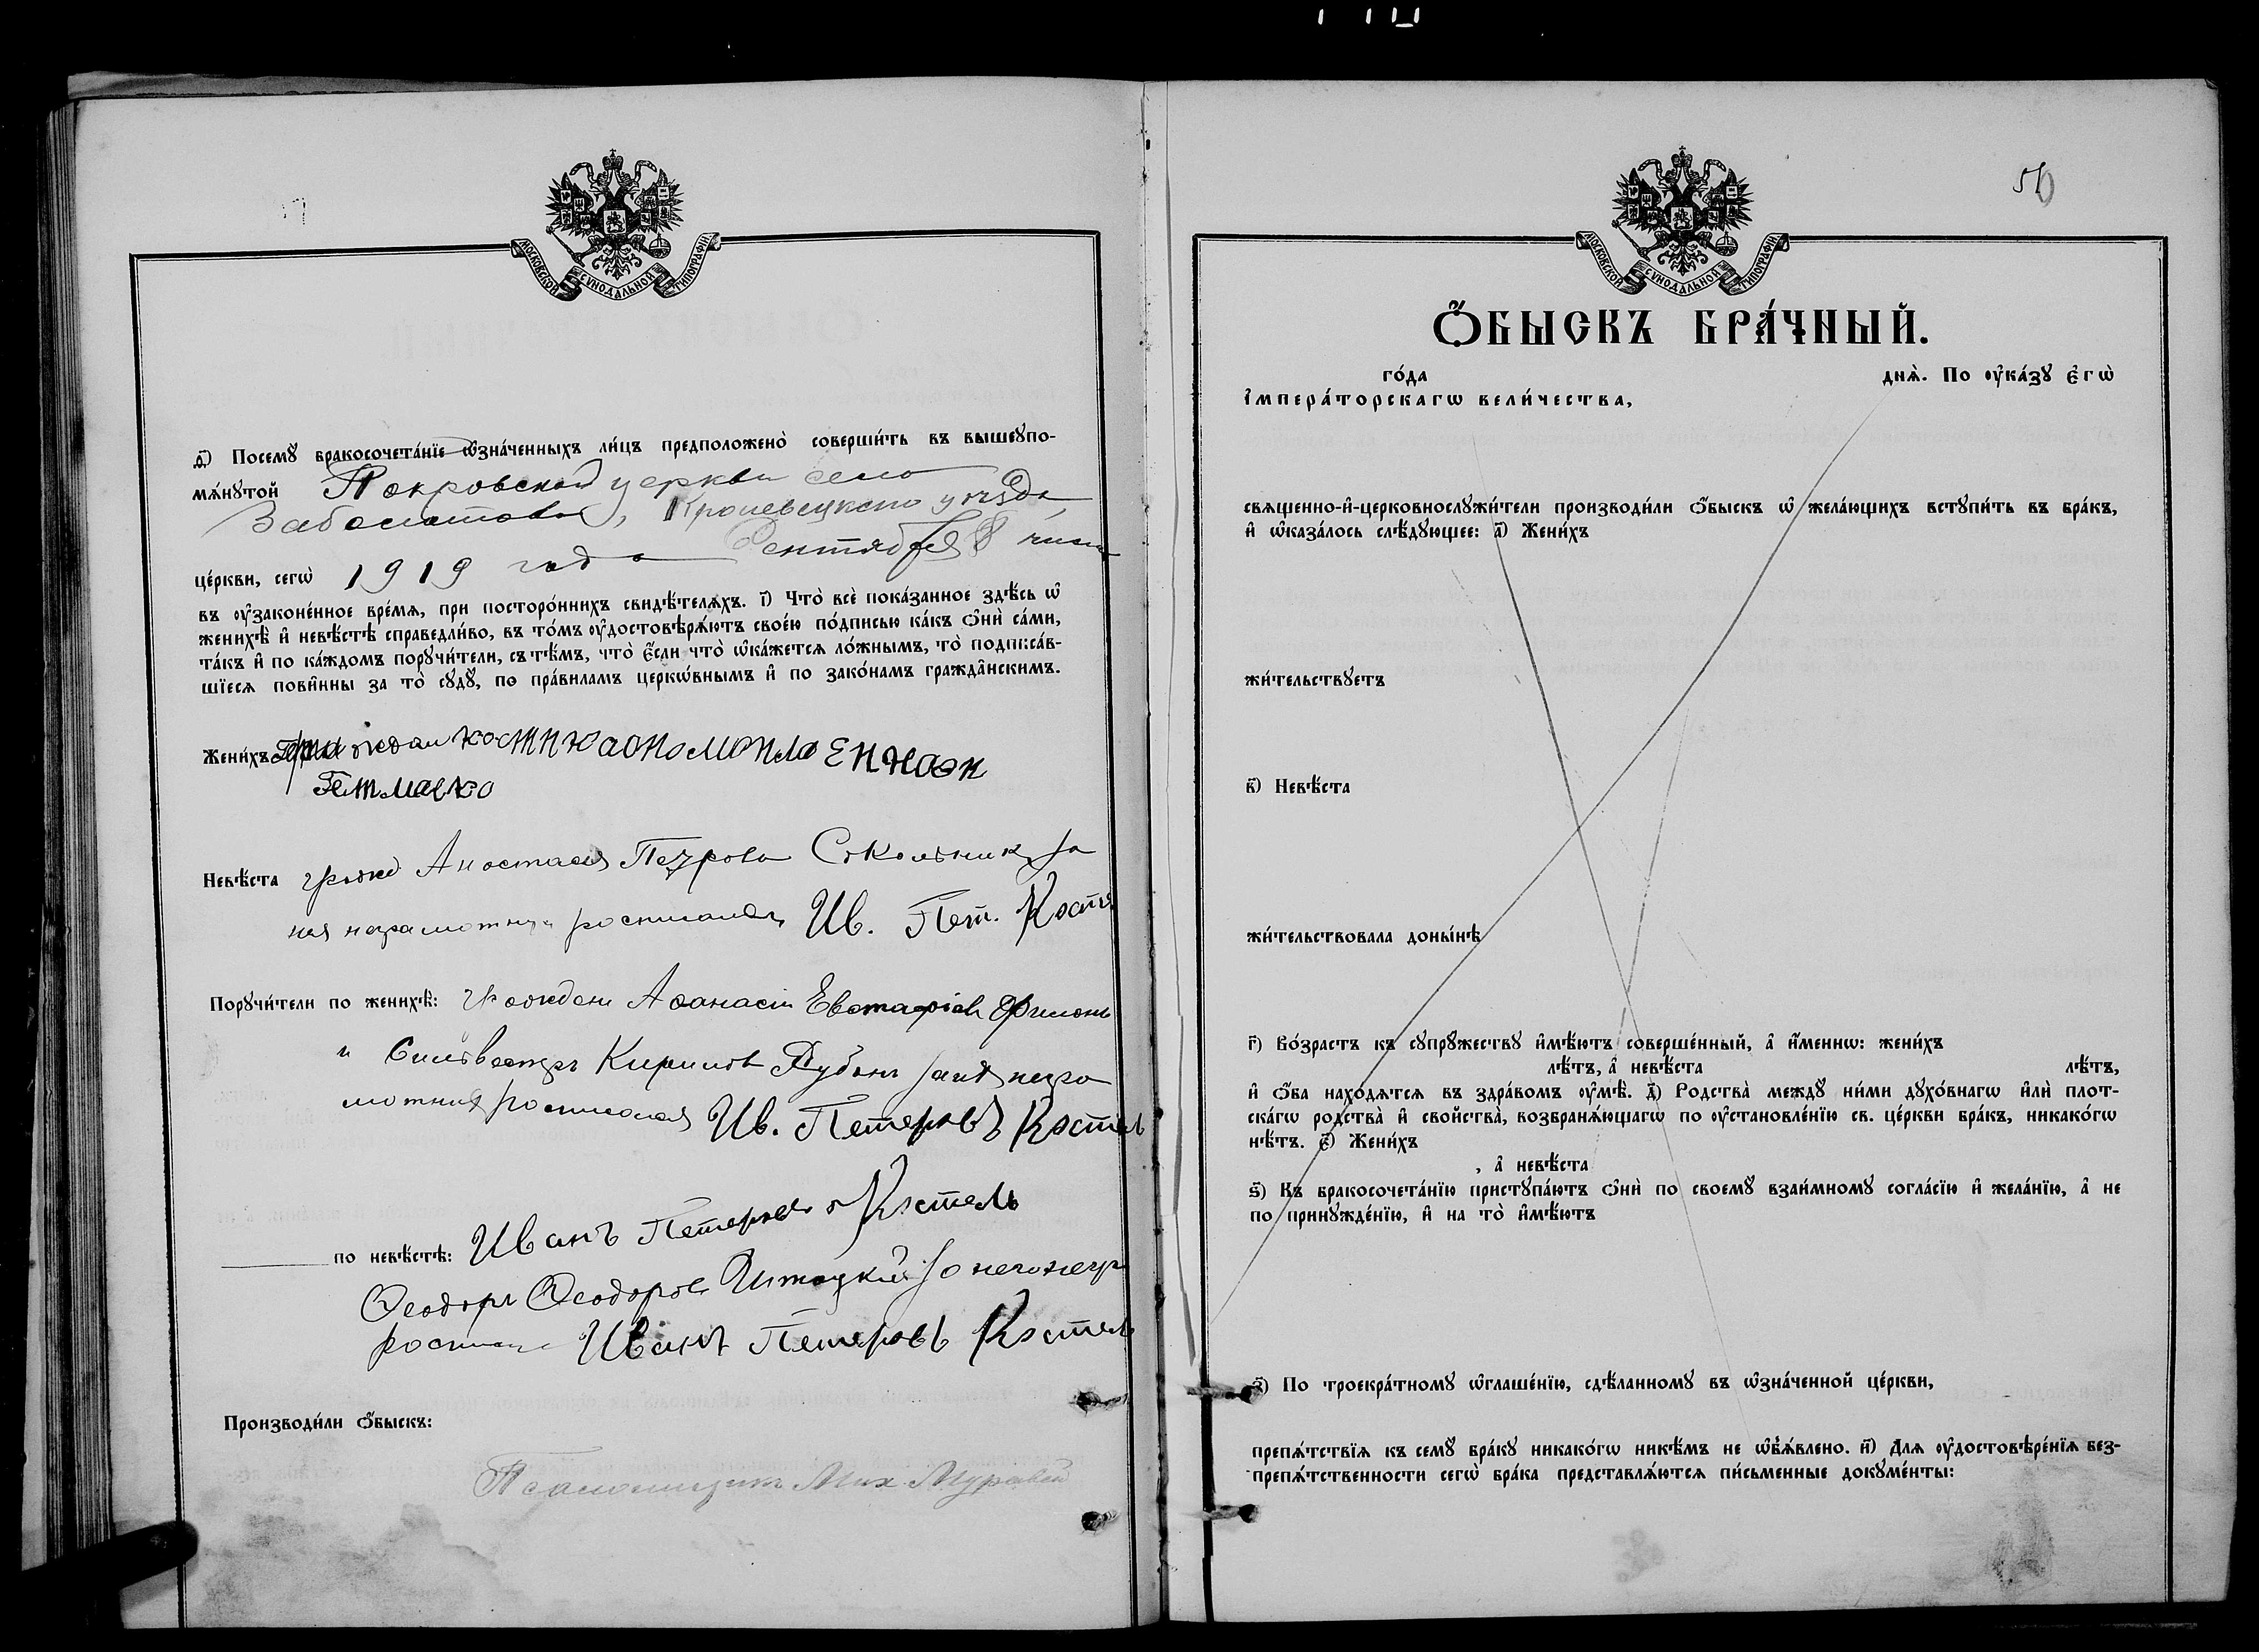 МОСКОВСКОЙ СѴНОДАЛЬНОЙ ТИПОГРАФІИ
ѳ҃) Посемꙋ бракосочета́нїе ѡ҆зна́ченныхъ ли́цъ предположено̀ соверши́ть въ вышеꙋпо-
мѧ́нꙋтой Покровской церкви село
Заболотова, Кролевецкого уезда
Сентября 8 числа
це́ркви, сегѡ̀ 1919 года
въ ᲂу҆законе́нное вре́мѧ, при посторо́ннихъ свидѣ́телѧхъ. і҃) Что̀ всѐ пока́занное здѣ́сь ѡ҆
женихѣ̀ и҆ невѣ́стѣ справедли́во, въ то́мъ ᲂу҆достовѣрѧ́ютъ свое́ю по́дписью ка́къ ѻ҆нѝ са́ми,
та́къ и҆ по ка́ждомъ порꙋчи́тели, съ тѣ́мъ, что̀ є҆́сли что̀ ѡ҆ка́жетсѧ ло́жнымъ, то̀ подписа́в-
шїесѧ пови́нны за то̀ сꙋдꙋ̀, по пра́виламъ церко́внымъ и҆ по зако́намъ гражда̂нскимъ.
Жени́хъ
Гетманко
Невѣ́ста гражд Анастасия Петрова Сокольник за
нея неграмотную росписался Ив. Пет. Косте
Порꙋчи́тели по женихѣ̀: Граждане Афанасій Евстафіев Филонъ
и Сильвестръ Кирилов Дубонъ за их негра
мотных росписался Ив. Петеровъ Костель
по невѣ́стѣ: Иванъ Петеровъ Костель
Ѳеодоръ Ѳеодоров за него негр
роспис Иванъ Петеровъ Костель
Производи́ли ѻ҆́быскъ:
Псаломщикъ Мих Муравій
50
МОСКОВСКОЙ СѴНОДАЛЬНОЙ ТИПОГРАФІИ
Ѻ҆́БЫСКЪ БРА́ЧНЫЙ.
го́да днѧ̀. По ᲂу҆ка́зꙋ є҆гѡ̀
і҆мпера́торскагѡ вели́чества,
свѧщенно-и҆-церковнослꙋжи́тели производи́ли ѻ҆́быскъ ѡ҆ жела́ющихъ встꙋпи́ть въ бра́къ,
и҆ ѡ҆каза́лось слѣ́дꙋющее: а҃) Жени́хъ
жи́тельствꙋетъ
в҃) Невѣ́ста
жи́тельствовала доны́нѣ
г҃) Во́зрастъ къ сꙋпрꙋ́жествꙋ и҆мѣ́ютъ соверше́нный, а҆ и҆́меннѡ: жени́хъ
лѣ́тъ, а҆ невѣ́ста лѣ́тъ,
и҆ ѻ҆́ба нахо́дѧтсѧ въ здра́вомъ ᲂу҆мѣ̀. д҃) Родства̀ междꙋ̀ ни́ми дꙋхо́внагѡ и҆лѝ плот-
ска́гѡ родства̀ и҆ сво́йства̀, возбранѧ́ющагѡ по ᲂу҆становле́нїю св. це́ркви бра́къ, никако́гѡ
нѣ́тъ. є҃) Жени́хъ
, а҆ невѣ́ста
ѕ҃) Къ бракосочета́нїю пристꙋпа́ютъ ѻ҆нѝ по своемꙋ̀ взаи́мномꙋ согла́сїю и҆ жела́нїю, а҆ не
по принꙋжде́нїю, и҆ на то̀ и҆мѣ́ютъ
з҃) По троекра́тномꙋ ѡ҆глаше́нїю, сдѣ́ланномꙋ въ ѡ҆зна́ченной це́ркви,
препѧ́тствїѧ къ семꙋ̀ бра́кꙋ никако́гѡ никѣ́мъ не ѡ҆б̾ѧ́влено. и҃) Длѧ ᲂу҆достовѣре́нїѧ без-
препѧ́тственности сегѡ̀ бра́ка представлѧ́ютсѧ пи́сьменные докꙋме́нты: